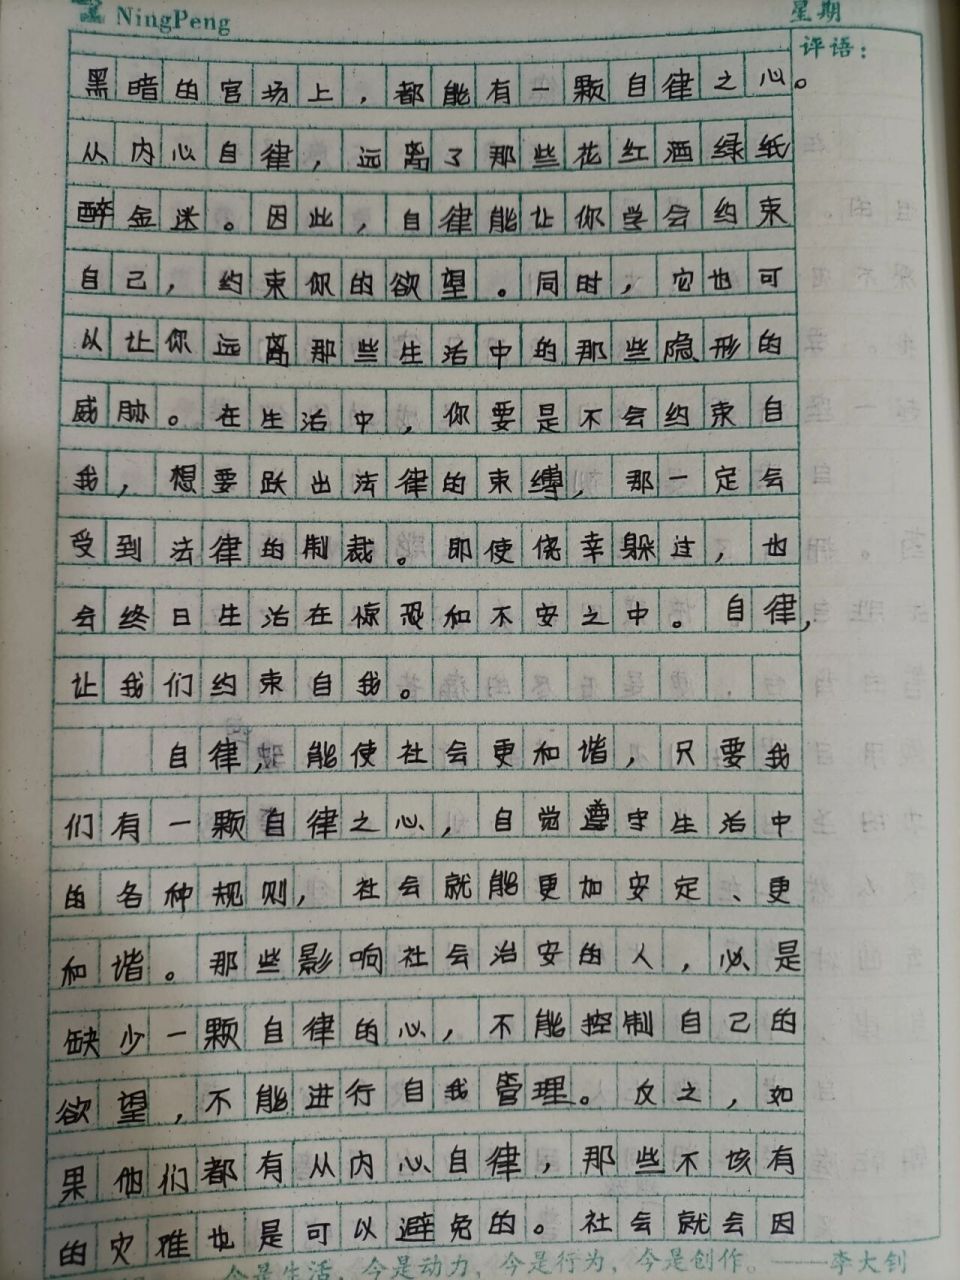 NingPeng
星期
评语：
黑暗的官场上，都能有一颗自律之心。
从内心自律，远离了那些花红酒绿纸
醉金迷。因此，自律能让你学会约束
自己，约束你的欲望。同时，它也可
以让你远离那些生活中的那些隐形的
威胁。在生活中，你要是不会约束自
我，想要跃出法律的束缚，那一定会
受到法律的制裁。即使侥幸躲过，也
会终日生活在惊恐和不安之中。自律，
让我们约束自我。
自律，能使社会更和谐，只要我
们有一颗自律之心，自觉遵守生活中
的各种规则，社会就能更加安定、更
和谐。那些影响社会治安的人，必是
缺少一颗自律的心，不能控制自己的
欲望，不能进行自我管理。反之，如
果他们都有从内心自律，那些不该有
的灾难也是可以避免的。社会就会因
今是生活，今是动力，今是行为，今是创作。——李大钊